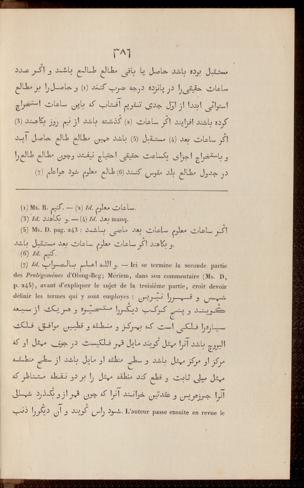 ٣٨٦
مستقبل بوده باشد حاصل یا باقی مطالع طالع باشد و اگر عدد
ساعات حقیقی را در پانزده درجه ضرب کنند (1) و حاصل را بر مطالع
استوائی ابتدا از اوّل جدی تقویم آفتاب که باین ساعات استخراج
کرده باشند افزایند اگر ساعات (2) گذشته باشد از نیم روز بکاهند (3)
اگر ساعات بعد (4) مستقبل (5) باشد همین مطالع طالع حاصل آید
و باستخراج اجزای یکساعت حقیقی احتیاج نیفتد وچون مطالع طالع را
در جدول مطالع بلد مقوس کنند (6) طالع معلوم شود هواعلم (7)
(1) Ms. B. کنیم. — (2) Id. ساعات معلوم.
(3) Id. و بکاهند. — (4) Id. بعد manq.
(5) Ms. D. pag. 243 : اگر ساعات معلوم ساعات بعد ماضی باشد
و بکاهند اگر ساعات معلوم ساعات بعد مستقبل باشد.
(6) Id. کنیم.
(7) Id. والله اعلم بالصواب. — Ici se termine la seconde partie
des Prolégomènes d'Oloug-Beg; Mériem, dans son commentaire (Ms. D,
p. 245), avant d'expliquer le sujet de la troisième partie, croit devoir
définir les termes qui y sont employés : شمس و قمر را نیّرین
گویند و پنج کوکب دیگر را متحیّره و هر یک از سبعه
سیاره را فلکی است که بمرکز و منطقه و قطبین موافق فلک
البروج باشد آنرا ممثل گویند مایل قمر فلکیست در جوف ممثل او که
مرکز او مرکز ممثل باشد و سطح منطقه او مایل باشد از سطح منطقه
ممثل میلی ثابت و قطع کند منطقه ممثل را بر دو نقطه متناظر که
آنرا جوزهرین و عقدتین خوانند آنرا که چون قمر از و بگذرد شمالی
شود راس گویند و آن دیگر را ذنب. L'auteur passe ensuite en revue le